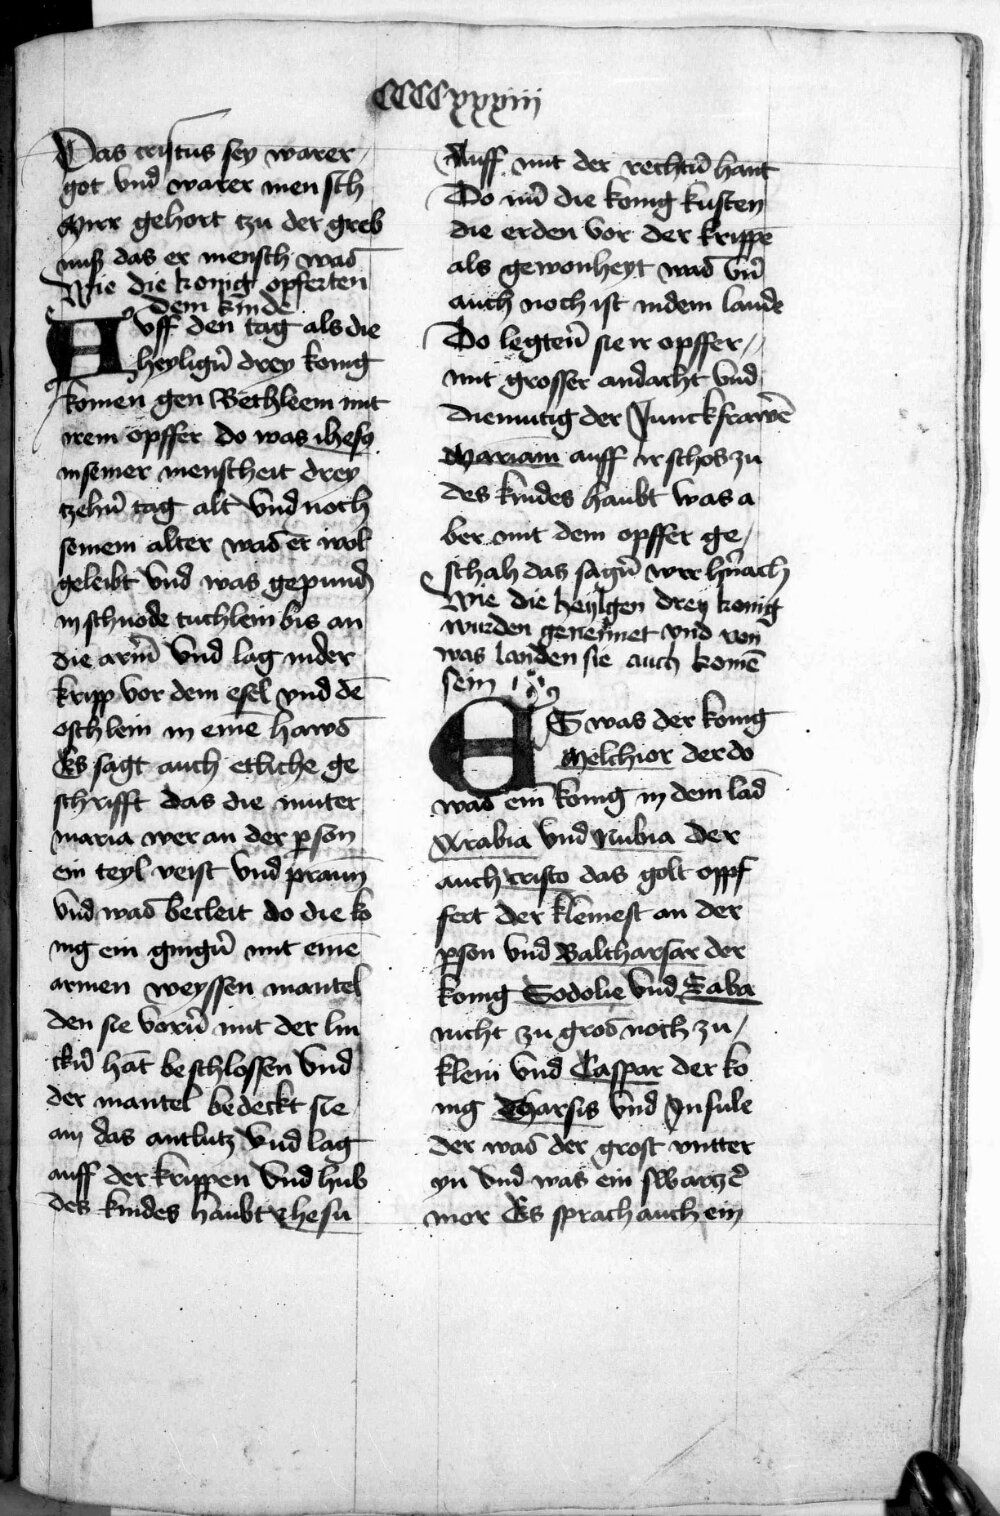 CCCCxxxiii
Das cristus sey warer
got vnd warer mensch
Mirr gehort tzu der greb
nuß das er mensch was
Wie die konig opferten
dem kinde
Auff den tag als die
heyligen̄ drey konig
komen gen Bethleem mit
irem opffer do was ihesu
in seiner menscheit drey
tzehn̄ tag alt vnd noch
seinem alter was er wol
geleibt vnd was gepunden̄
in schnode tuchlein bis an
die arm̄ vnd lag in der
kripp vor dem esel vnd dē
ochslein in eine haws
Es sagt auch etliche ge
schrifft das die muter
maria wer an der p̄son
ein teyl veist vnd praun̄
vnd was becleit do die ko
nig ein gingen̄ mit eine̅
armen weyssen mantel
den sie vorn̄ mit der lin
ckn̄ hāt beschlossen vnd
der mantel bedeckt sie
an das antlutz vnd lag
auff der krippen vnd hub
des kindes haubt ihesu
Auff mit der rechtn̄ hant
Do nū die konig kusten
die erden vor der krippe
als gewonheyt was vn̄
auch noch ist in dem lande
Do legten̄ sie ir opffer
mit grosser andacht vnd
diemutig der Junckfrawē
Mariam auff ir schos zu
des kindes haubt was a
ber mit dem opffer ge
schah das sagn̄ wir h̄nach
Wie die heylgen drey konig
wurden genennet vnd von
was landen sie auch komē
sein
ES was der konig
Melchior der do
was ein konig in dem lād
Arabia vnd Nubia der
auch cristo das golt oppf
fert der klemest an der
p̄son vnd Balthasar der
konig Godolie vnd Saba
nicht zu gros noch zu
klein vnd Caspar der ko
nig Tharsis vnd Insule
der was der grost vntter
yn vnd was ein swarcz̄
mor Es sprach auch ein